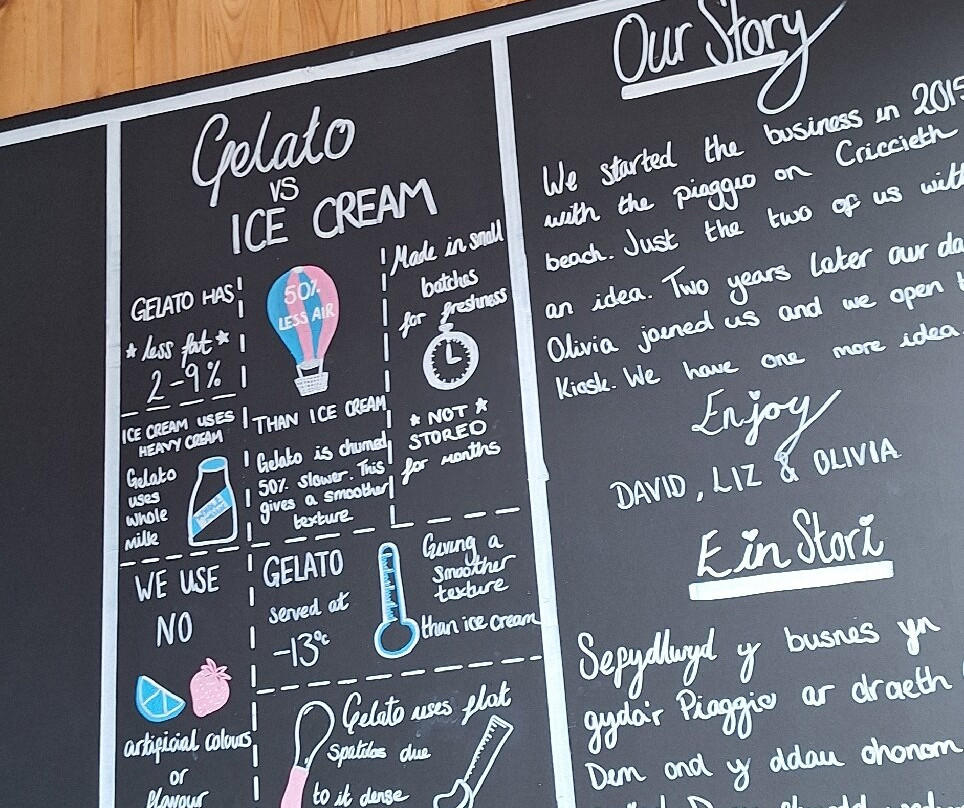 Gelato
VS
ICE CREAM
GELATO HAS
* less fat *
2-9%
50%
LESS AIR
THAN ICE CREAM
Made in small
batches
for freshness
* NOT *
STORED
for months
ICE CREAM USES
HEAVY CREAM
Gelato
uses
whole
milk
Gelato is churned
50% slower. This
gives a smoother
texture
WE USE
NO
artificial colours
or
flavour
GELATO
served at
-13°c
Giving a
smoother
texture
than ice cream
Gelato uses flat
Spatilas due
to it dense
Our Story
We started the business in 2015
with the piaggio on Criccieth
beach. Just the two of us with
an idea. Two years later our da
Olivia joined us and we open t
Kiosk. We have one more idea.
Enjoy
DAVID, LIZ & OLIVIA
Ein Stori
Sefydllwyd y busnes yn
gyda'r Piaggio ar draeth
Dem ond y ddau ohonom